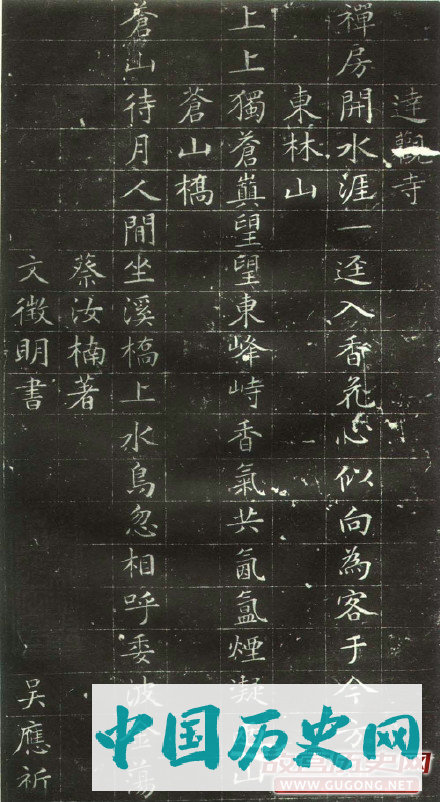 達觀寺
禪房開水涯一逕入香花心似向為客于今方
東林山
上上獨蒼蒼朢朢東峰峙香氣共氤氳煙凝山
蒼山橋
蒼山待月人閒坐溪橋上水鳥忽相呼委波金蕩
蔡汝楠著
文徵明書 吴應祈
中国历史网
WWW.GUGONG.NET